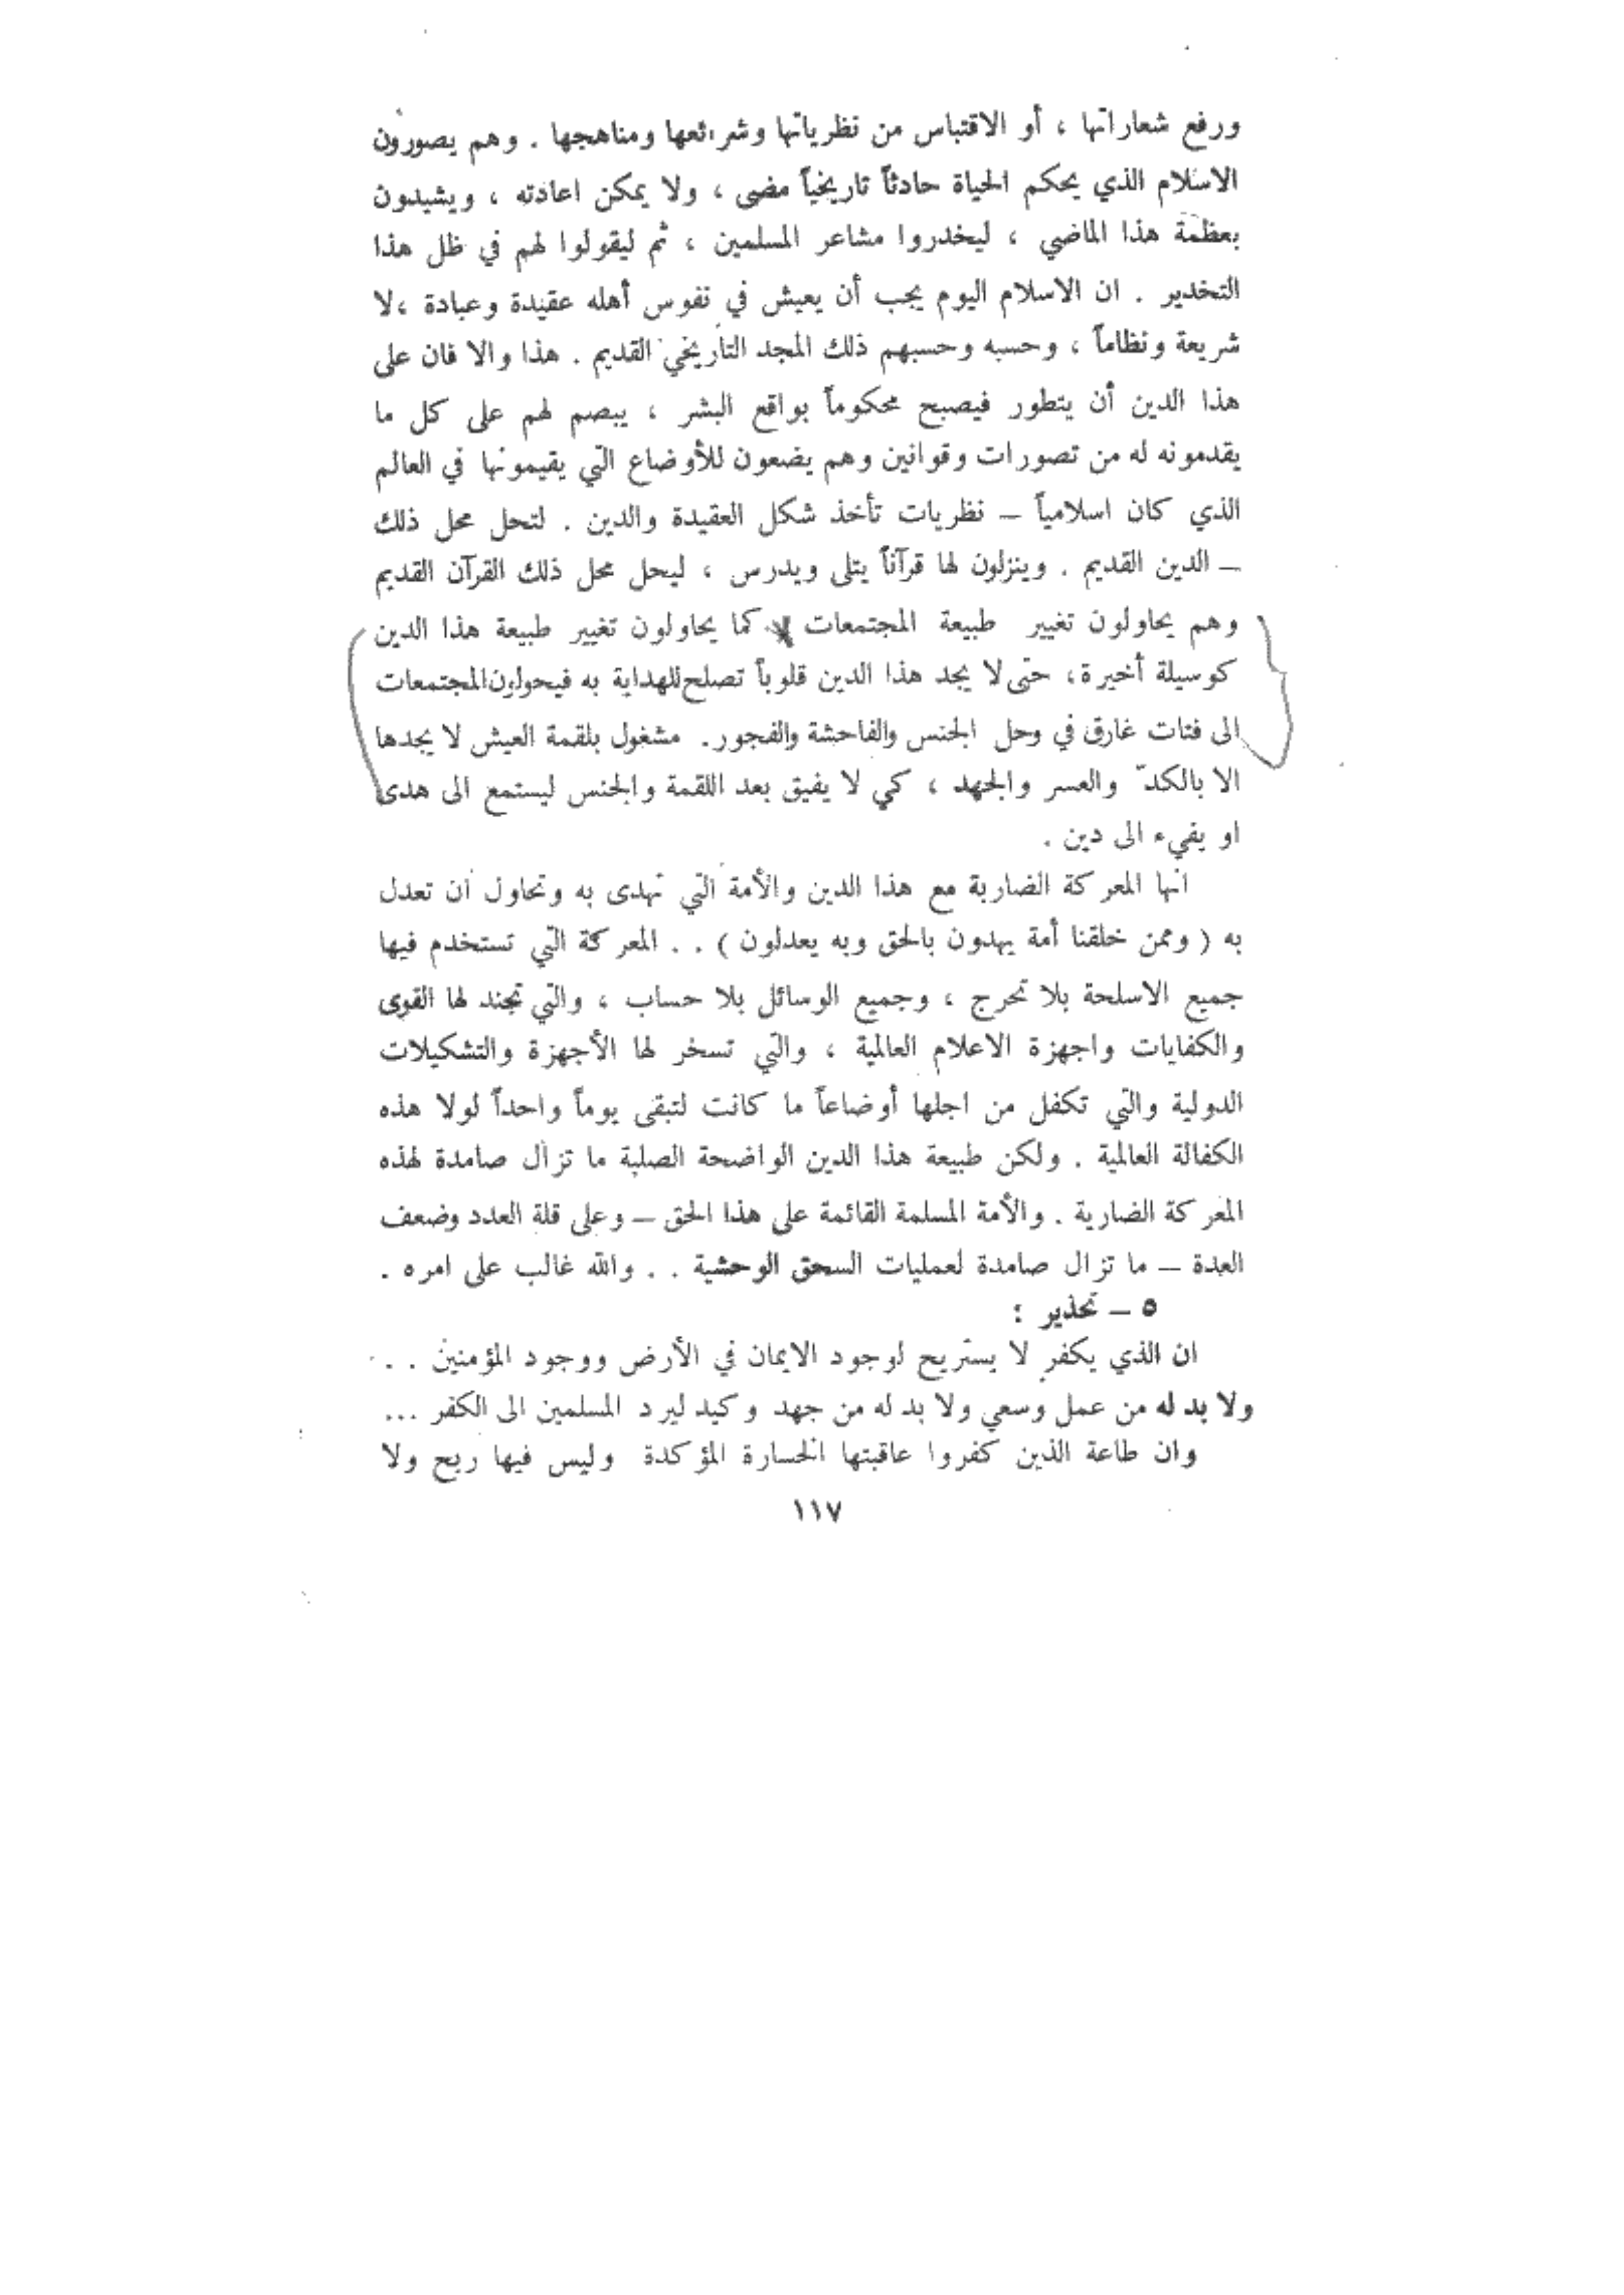 ورفع شعاراتها ، أو الاقتباس من نظرياتها وشرائعها ومناهجها . وهم يصورون
الاسلام الذي يحكم الحياة حادثاً تاريخياً مضى ، ولا يمكن اعادته ، ويشيدون
بعظمة هذا الماضي ، ليخدروا مشاعر المسلمين ، ثم ليقولوا لهم في ظل هذا
التخدير . ان الاسلام اليوم يجب أن يعيش في نفوس أهله عقيدة وعبادة ،لا
شريعة ونظاماً ، وحسبه وحسبهم ذلك المجد التأريخي القديم . هذا والا فان على
هذا الدين أن يتطور فيصبح محكوماً بواقع البشر ، يبصم لهم على كل ما
يقدمونه له من تصورات وقوانين وهم يضعون للأوضاع التي يقيمونها في العالم
الذي كان اسلامياً – نظريات تأخذ شكل العقيدة والدين . لتحل محل ذلك
– الدين القديم . وينزلون لها قرآناً يتلى ويدرس ، ليحل محل ذلك القرآن القديم
وهم يحاولون تغيير طبيعة المجتمعات كما يحاولون تغيير طبيعة هذا الدين
كوسيلة أخيرة، حتى لا يجد هذا الدين قلوباً تصلح للهداية به فيحولون المجتمعات
الى فتات غارق في وحل الجنس والفاحشة والفجور. مشغول بلقمة العيش لا يجدها
الا بالكدّ والعسر والجهد ، كي لا يفيق بعد اللقمة والجنس ليستمع الى هدى
او يفيء الى دين .
انها المعركة الضارية مع هذا الدين والأمة التي تهدى به وتحاول أن تعدل
به ( وممن خلقنا أمة يهدون بالحق وبه يعدلون ) . . المعركة التي تستخدم فيها
جميع الاسلحة بلا تحرج ، وجميع الوسائل بلا حساب ، والتي تجند لها القوى
والكفايات واجهزة الاعلام العالمية ، والتي تسخر لها الأجهزة والتشكيلات
الدولية والتي تكفل من اجلها أوضاعاً ما كانت لتبقى يوماً واحداً لولا هذه
الكفالة العالمية . ولكن طبيعة هذا الدين الواضحة الصلبة ما تزال صامدة لهذه
المعركة الضارية . والأمة المسلمة القائمة على هذا الحق – وعلى قلة العدد وضعف
العدة – ما تزال صامدة لعمليات السحق الوحشية . . والله غالب على امره .
٥ – تحذير :
ان الذي يكفر لا يستريح لوجود الايمان في الأرض ووجود المؤمنين . .
ولا بد له من عمل وسعي ولا بد له من جهد وكيد ليرد المسلمين الى الكفر ...
وان طاعة الذين كفروا عاقبتها الخسارة المؤكدة وليس فيها ربح ولا
١١٧